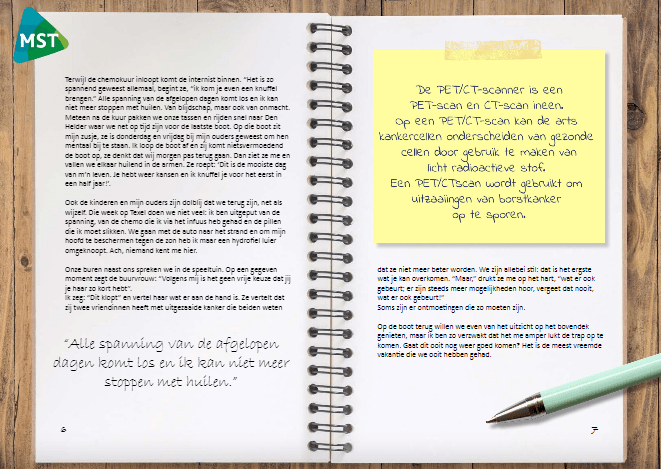 MST
Terwijl de chemokuur inloopt komt de internist binnen. "Het is zo
spannend geweest allemaal, begint ze, "ik kom je even een knuffel
brengen." Alle spanning van de afgelopen dagen komt los en ik kan
niet meer stoppen met huilen. Van blijdschap, maar ook van onmacht.
Meteen na de kuur pakken we onze tassen en rijden snel naar Den
Helder waar we net op tijd zijn voor de laatste boot. Op die boot zit
mijn zusje, ze is donderdag en vrijdag bij mijn ouders geweest om hen
mentaal bij te staan. Ik loop de boot af en zij komt nietsvermoedend
de boot op, ze denkt dat wij morgen pas terug gaan. Dan ziet ze me en
vallen we elkaar huilend in de armen. Ze roept: 'Dit is de mooiste dag
van m'n leven. Je hebt weer kansen en ik knuffel je voor het eerst in
een half jaar!'.
Ook de kinderen en mijn ouders zijn dolblij dat we terug zijn, net als
wijzelf. Die week op Texel doen we niet veel: ik ben uitgeput van de
spanning, van de chemo die ik via het infuus heb gehad en de pillen
die ik moet slikken. We gaan met de auto naar het strand en om mijn
hoofd te beschermen tegen de zon heb ik maar een hydrofiel luier
omgeknoopt. Ach, niemand kent me hier.
Onze buren naast ons spreken we in de speeltuin. Op een gegeven
moment zegt de buurvrouw: "Volgens mij is het geen vrije keuze dat jij
je haar zo kort hebt".
Ik zeg: "Dit klopt" en vertel haar wat er aan de hand is. Ze vertelt dat
zij twee vriendinnen heeft met uitgezaaide kanker die beiden weten
"Alle spanning van de afgelopen
dagen komt los en ik kan niet meer
stoppen met huilen."
6
De PET/CT-scanner is een
PET-scan en CT-scan ineen.
Op een PET/CT-scan kan de arts
kankercellen onderscheiden van gezonde
cellen door gebruik te maken van
licht radioactieve stof.
Een PET/CTscan wordt gebruikt om
uitzaaiingen van borstkanker
op te sporen.
dat ze niet meer beter worden. We zijn allebei stil: dat is het ergste
wat je kan overkomen. "Maar," drukt ze me op het hart, "wat er ook
gebeurt; er zijn steeds meer mogelijkheden hoor, vergeet dat nooit,
wat er ook gebeurt!"
Soms zijn er ontmoetingen die zo moeten zijn.
Op de boot terug willen we even van het uitzicht op het bovendek
genieten, maar ik ben zo verzwakt dat het me amper lukt de trap op te
komen. Gaat dit ooit nog weer goed komen? Het is de meest vreemde
vakantie die we ooit hebben gehad.
7